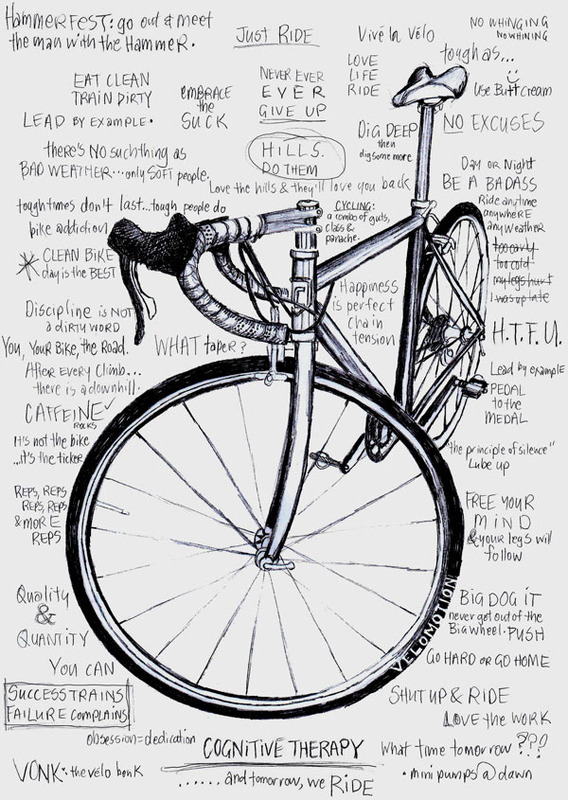 HAMMERFEST: go out & meet
the man with the HAMMER.
JUST RIDE
Vivé la Vélo
NO WHINGING
NO WHINING
tough as...
LOVE
LIFE
RIDE
Use Butt Cream
EAT CLEAN
TRAIN DIRTY
LEAD BY EXAMPLE.
EMBRACE
the
SUCK
NEVER EVER
EVER
GIVE UP
DIG DEEP
then
dig some more
NO EXCUSES
HILLS.
DO THEM
Love the hills & they'll love you back
there's NO such thing as
BAD WEATHER...only SOFT people.
Day or Night
BE A BADASS
Ride anytime
anywhere
any weather
too early
too cold
my legs hurt
I was up late
tough times don't last...tough people do
bike addiction
CYCLING:
a combo of guts,
class &
panache.
CLEAN BIKE
day is the BEST
Happiness
is perfect
chain
tension
Discipline is NOT
a dirty WORD
You, Your Bike, the Road.
WHAT taper?
H.T.F.U.
AFTER EVERY Climb...
there is a downhill.
Lead by example
PEDAL
to the
MEDAL
CAFFEINE
ROCKS
It's not the bike
...it's the ticker
"the principle of silence"
Lube up
REPS, REPS
REPS, REPS
& MORE
REPS
FREE YOUR
MIND
& your legs will
follow
Quality
&
QUANTITY
BIG DOG IT
never get out of the
Big wheel. PUSH
VELOMOTION
YOU CAN
GO HARD OR GO HOME
SUCCESS TRAINS
FAILURE COMPLAINS
SHUT UP & RIDE
LOVE the WORK
obsession = dedication
COGNITIVE THERAPY
What time tomorrow???
VONK: the vélo bonk
......and tomorrow, we RIDE
• mini pumps @ dawn